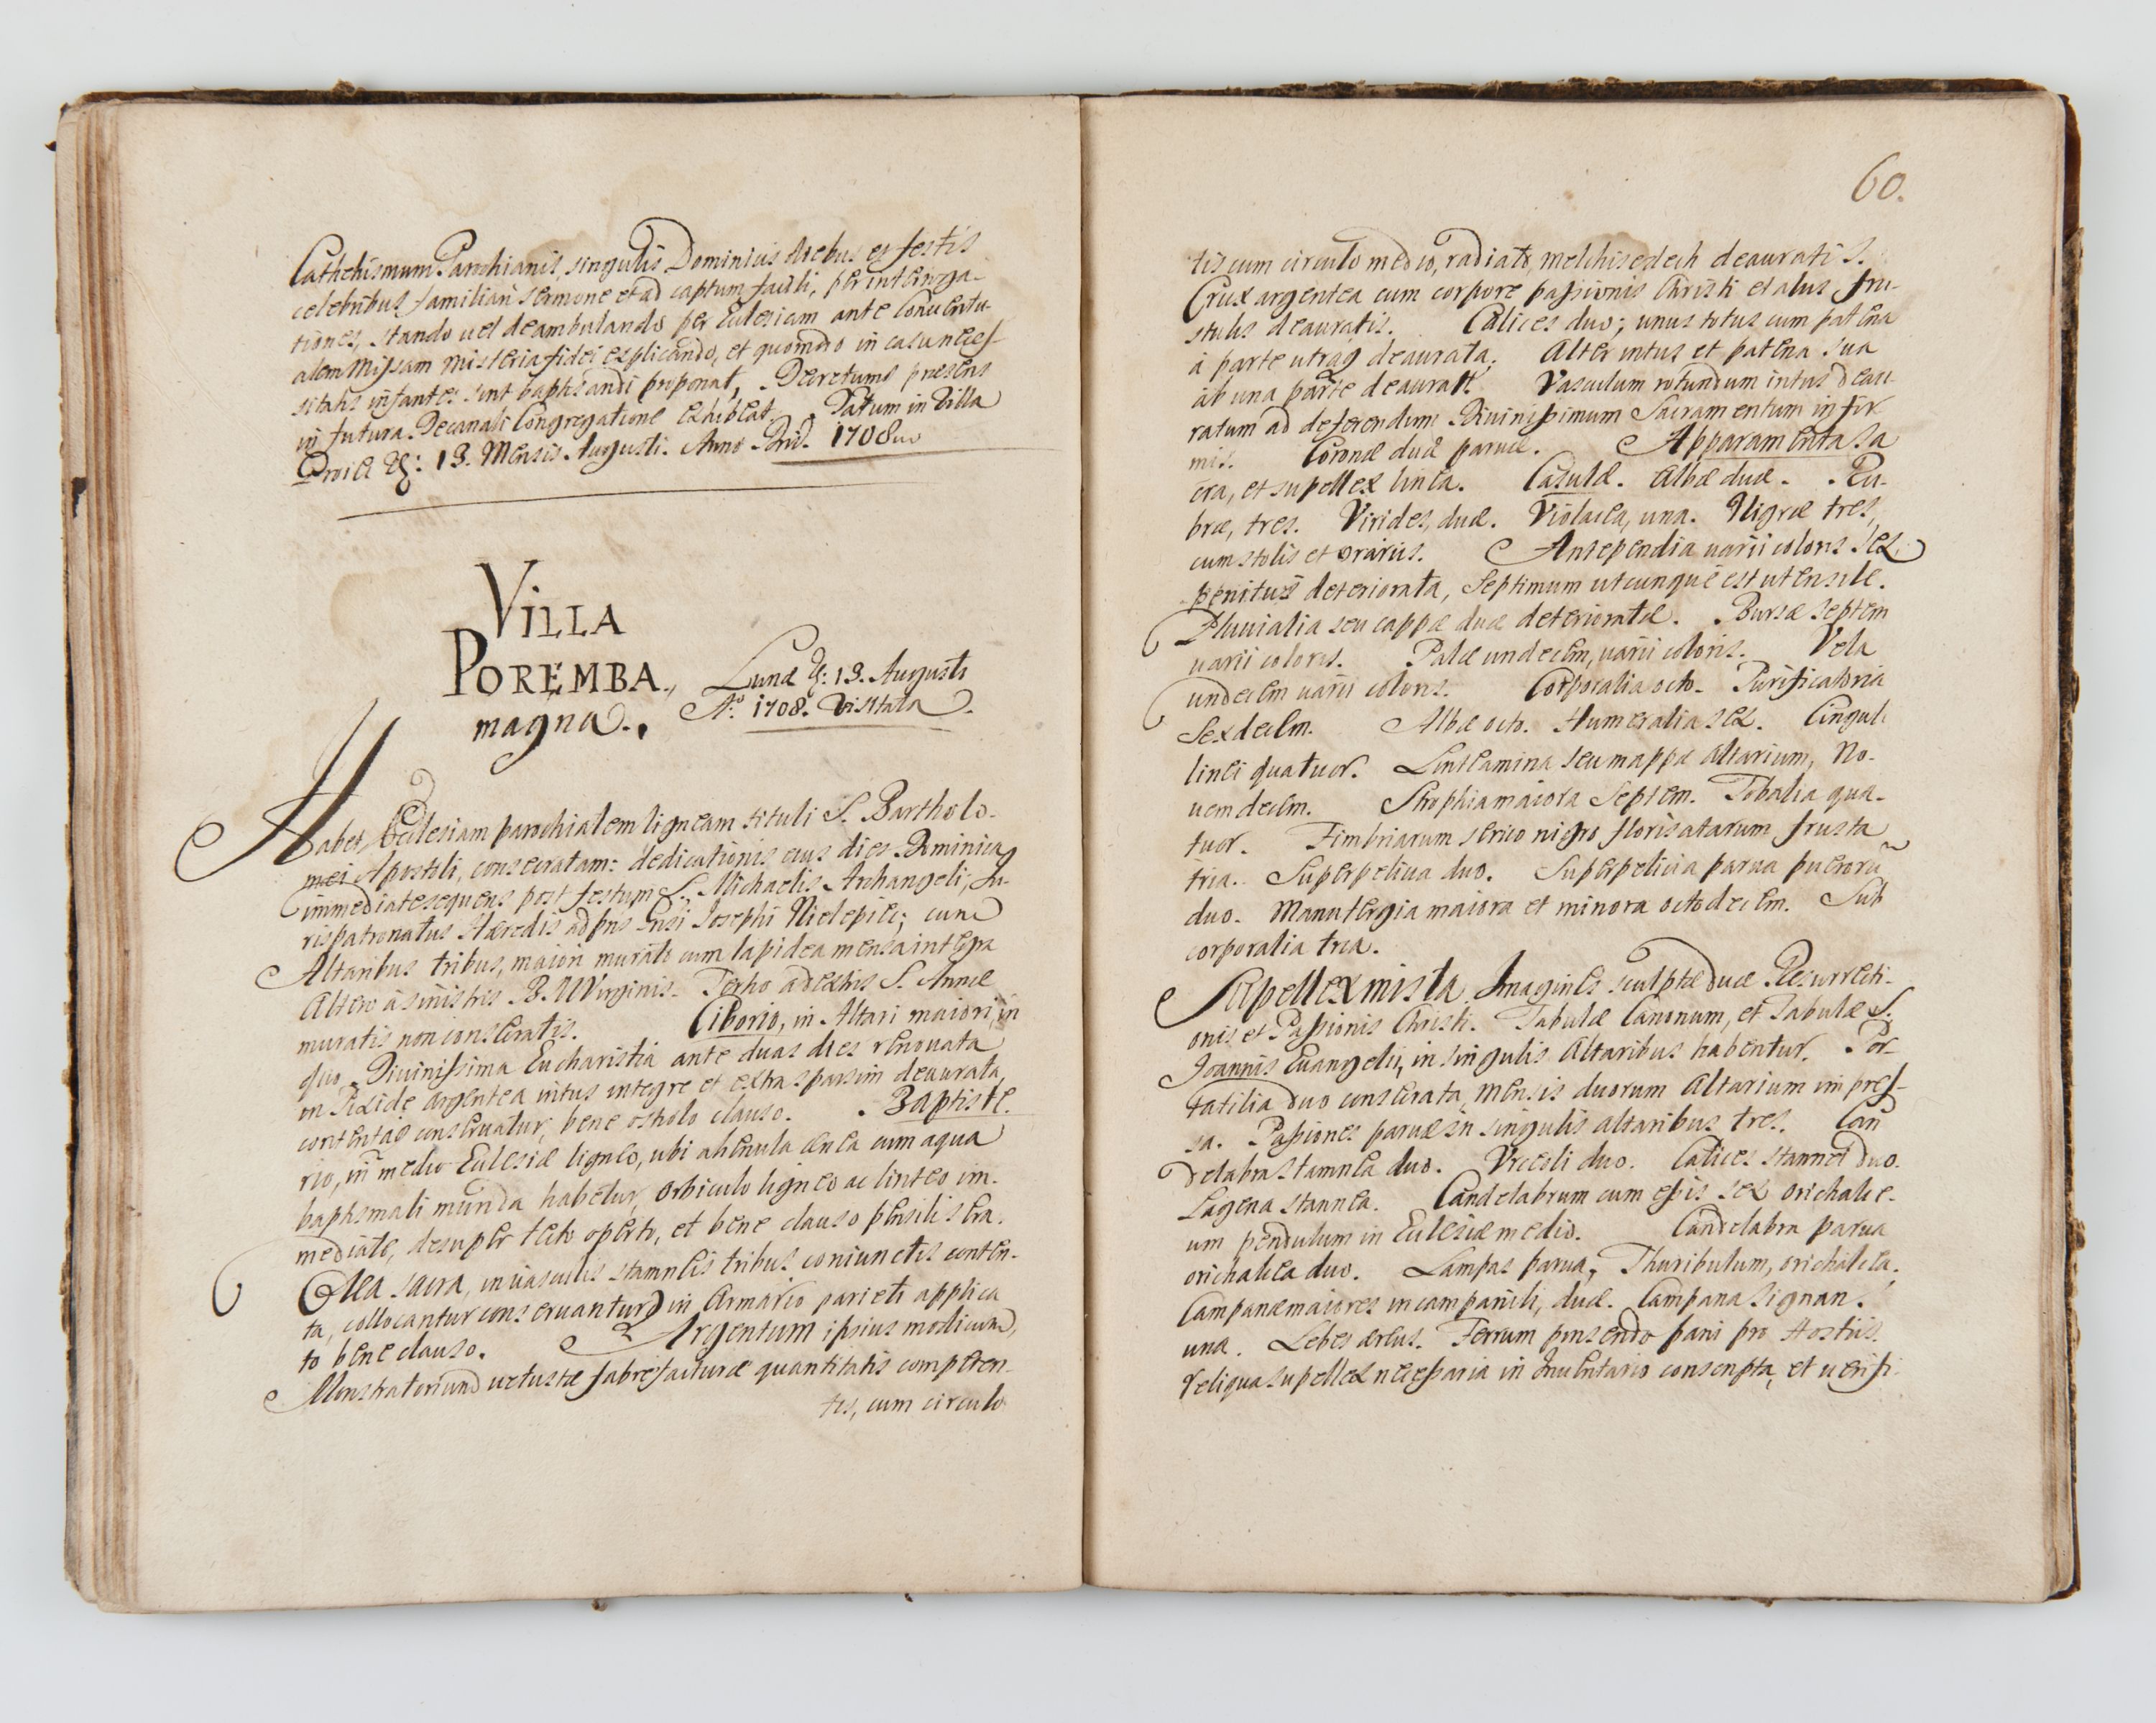 Cathehismum Parochianis singulis Dominicis diebus et festis
celebribus familiari sermone et ad captum facili, per interroga-
tiones, stando uel deambulando per Eclesiam ante Conuentu-
alem Missam misteria fidei explicando, et quomodo in casu neces-
sitatis infantes sint baptisandi proponat, Decretumq praesens
in futura Decanali Congregatione exhibeat. Datum in Villa
13. Mensis Augusti. Anno Dni. 1708uo
VILLA
POREMBA.,
magna.,
Lunae d: 13. Augusti
Ao: 1708. Visitata.
Habet, Eclesiam parochialem ligneam tituli S. Bartholo-
mei Apostoli, consecratam: dedicationis eius dies Dominica
immediate sequens post festum S. Michaelis Archangeli; Iu-
ris patronatus Haeredis ad pns Gnsi Josephi Nielepiec; cum
Altaribus tribus, maiori murato cum lapidea mensa integra
Altero à sinistris B. M Virginis. Tertio a dextris S. Annae
muratis non consecratis. Ciborio, in Altari maiori, in
quo Diuinissima Eucharistia ante duas dies renouata
in Pixide argentea intus integre et extra sparsim deaurata
contenta conseruatur, bene ostiolo clauso. Baptiste-
rio, in medio Eclesiae ligneo, ubi ahenula aenea cum aqua
baptismali munda habetur, orbiculo ligneo ac linteo im-
mediate, desuper tecto operto, et bene clauso pensili sera.
Olea sacra, in uasculis stamneis tribus coniunctis conten-
ta, collocantur conseruantur in Armario parieti applica
to bene clauso. Argentum ipsius modicum,
Monstratorium uetustae fabrefacturae quantitatis competen-
tis, cum circulo
60.
tis cum circulo medio, radiato, melchisedech deauratis.
Crux argentea cum corpore passionis Christi et alus fru-
stulis deauratis. Calices duo; unus totus cum patena
à parte utraq deaurata. Alter intus et patena sua
ab una parte deaurati. Vasculum rotundum intus deau-
ratum ad deferendum Diuinissimum Sacramentum infir
mis. Coronae duae paruae. Apparamenta Sa
cra, et supellex lintea. Casulae. Albae duae. Ru-
brae, tres. Virides, duae. Violacea, una. Nigrae tres,
cum stolis et orariis. Antependia uarii coloris sex
penitus deteriorata, Septimum utcunque est utensile.
Pluuialia seu cappae duae deterioratae. Bursae septem
uarii coloris. Palae undecim, uarii coloris. Vela
undecim uarii coloris. Corporalia octo. Purificatoria
Sexdecim. Albae octo. Humeralia sex. Cinguli
linei quatuor. Linteamina seu mappae altarium, No-
uemdecim. Strophia maiora Septem. Tobalia qua-
tuor. Fimbriarum serico nigro florisatarum frusta
tria. Superpelicia duo. Superpelicia parua puerorũ
duo. Manutergia maiora et minora octodecim. Sub
corporalia tria.
Supellex mista Imagines sculptae duae Resurrecti-
onis et Passionis Christi. Tabulae Canonum, et Tabulae S.
Joannis Euangelii, in singulis Altaribus habentur. Por-
tatilia duo consecrata, mensis duorum Altarium impres-
sa. Passiones paruae in singulis altaribus tres. Can
delabra stamnea duo. Vrceoli duo. Calices stannei duo.
Lagena stannea. Candelabrum cum episs sex orichalce-
um pendulum in Eclesiae medio. Candelabra parua
orichalcea duo. Lampas parua, Thuribulum, orichalcea.
Campanae maiores in campanili, duae. Campana Signan.
una. Lebes aereus. Ferrum pinsendo pani pro Hostiis.
Reliqua supellex necessaria in Inuentario conscripta, et uerifi